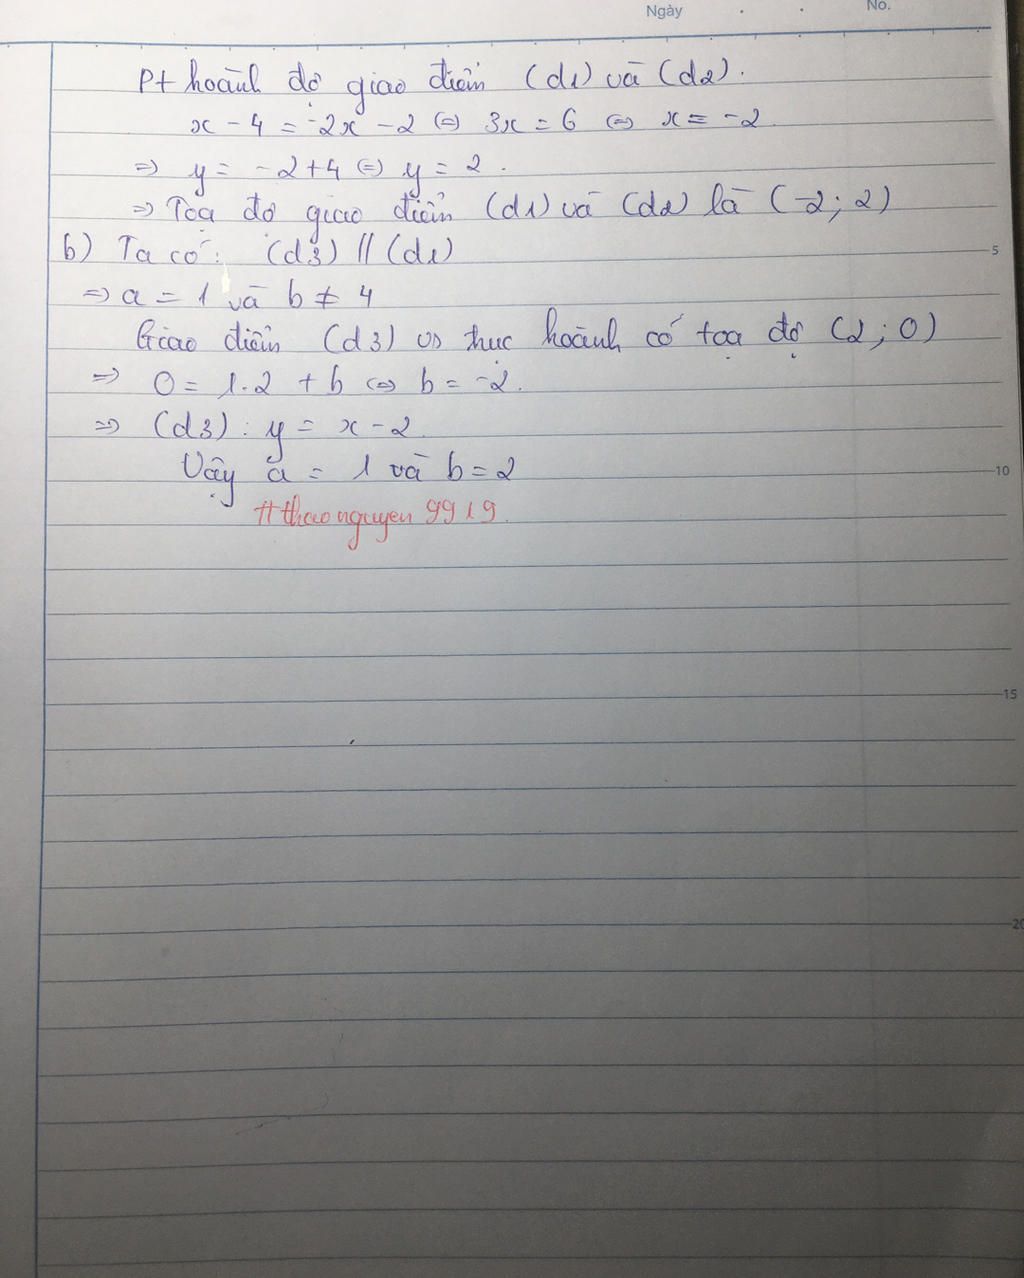 Ngày No.
Pt hoành độ giao điểm (d1) và (d2).
x - 4 = -2x - 2 <=> 3x = 6 <=> x = -2
=> y = -2+4 <=> y = 2.
=> Tọa độ giao điểm (d1) và (d2) là (-2; 2)
b) Ta có: (d3) // (d1)
5
=> a = 1 và b ≠ 4
Giao điểm (d3) vs trục hoành có tọa độ (2; 0)
=> 0 = 1.2 + b <=> b = -2.
=> (d3): y = x - 2
Vậy a = 1 và b = 2
10
#thaonguyen9919.
15
20